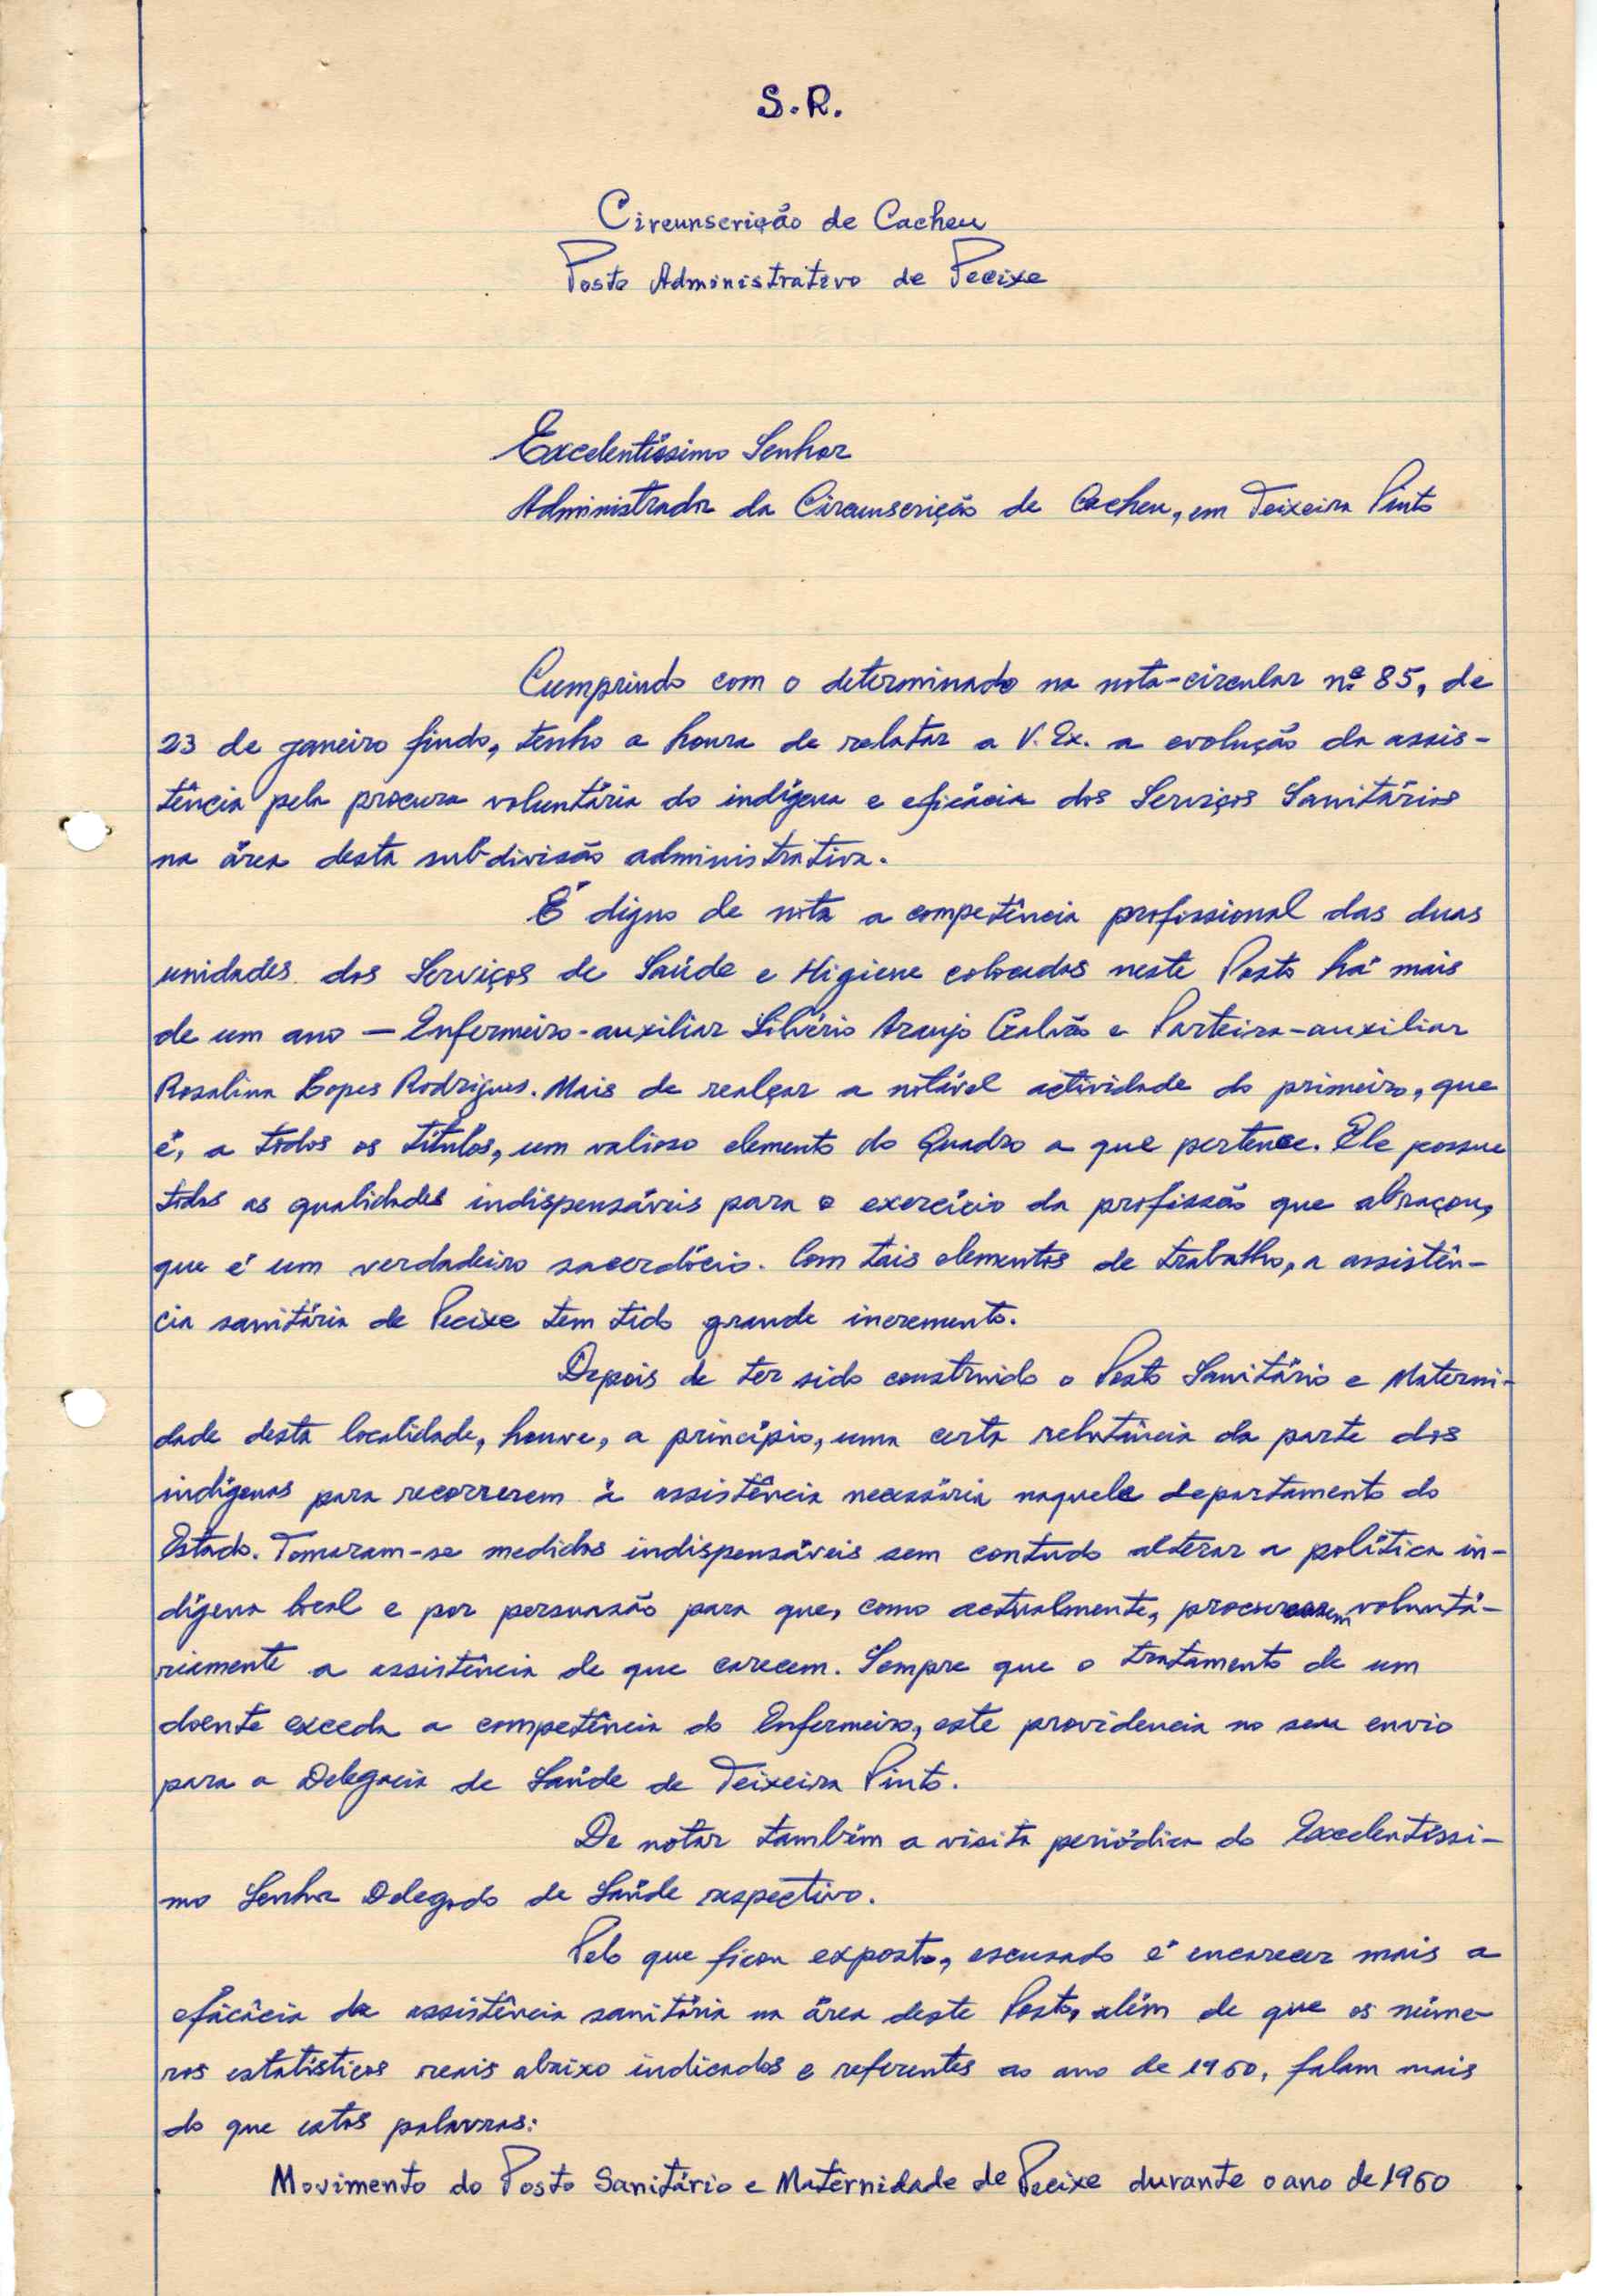 S.R.
Circunscrição de Cacheu
Posto Administrativo de Pecixe
Excelentíssimo Senhor
Administrador da Circunscrição de Cacheu, em Teixeira Pinto
Cumprindo com o determinado na nota-circular nº 85, de
23 de janeiro findo, tenho a honra de relatar a V. Ex. a evolução da assis-
tência pela procura voluntária do indígena e eficácia dos Serviços Sanitários
na área desta sub-divisão administrativa.
É digno de nota a competência profissional das duas
unidades dos Serviços de Saúde e Higiene colocadas neste Posto há mais
de um ano — Enfermeiro-auxiliar Silvério Araujo Galvão e Parteira-auxiliar
Rosalina Lopes Rodrigues. Mais de realçar a notável actividade do primeiro, que
é, a todos os títulos, um valioso elemento do Quadro a que pertence. Ele possue
todas as qualidades indispensáveis para o exercício da profissão que abraçou,
que é um verdadeiro sacerdócio. Com tais elementos de trabalho, a assistên-
cia sanitária de Pecixe tem tido grande incremento.
Depois de ter sido construido o Posto Sanitário e Materni-
dade desta localidade, houve, a princípio, uma certa relutância da parte dos
indígenas para recorrerem à assistência necessária naquele departamento do
Estado. Tomaram-se medidas indispensáveis sem contudo alterar a política in-
dígena local e por persuasão para que, como actualmente, procurassem voluntá-
riamente a assistência de que carecem. Sempre que o tratamento de um
doente exceda a competência do Enfermeiro, este providencia no seu envio
para a Delegacia de Saúde de Teixeira Pinto.
De notar também a visita periódica do Excelentíssi-
mo Senhor Delegado de Saúde respectivo.
Pelo que ficou exposto, escusado é encarecer mais a
eficácia da assistência sanitária na área deste Posto, além de que os núme-
ros estatísticos reais abaixo indicados e referentes ao ano de 1960, falam mais
do que estas palavras:
Movimento do Posto Sanitário e Maternidade de Pecixe durante o ano de 1960